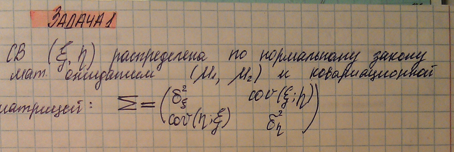 ЗАДАЧА 1
СВ (ξ, η) распределена по нормальному закону
мат. ожиданием (μ₁, μ₂) и ковариационной
матрицей: Σ = ( σ²_ξ cov(ξ;η)
cov(η;ξ) σ²_η )